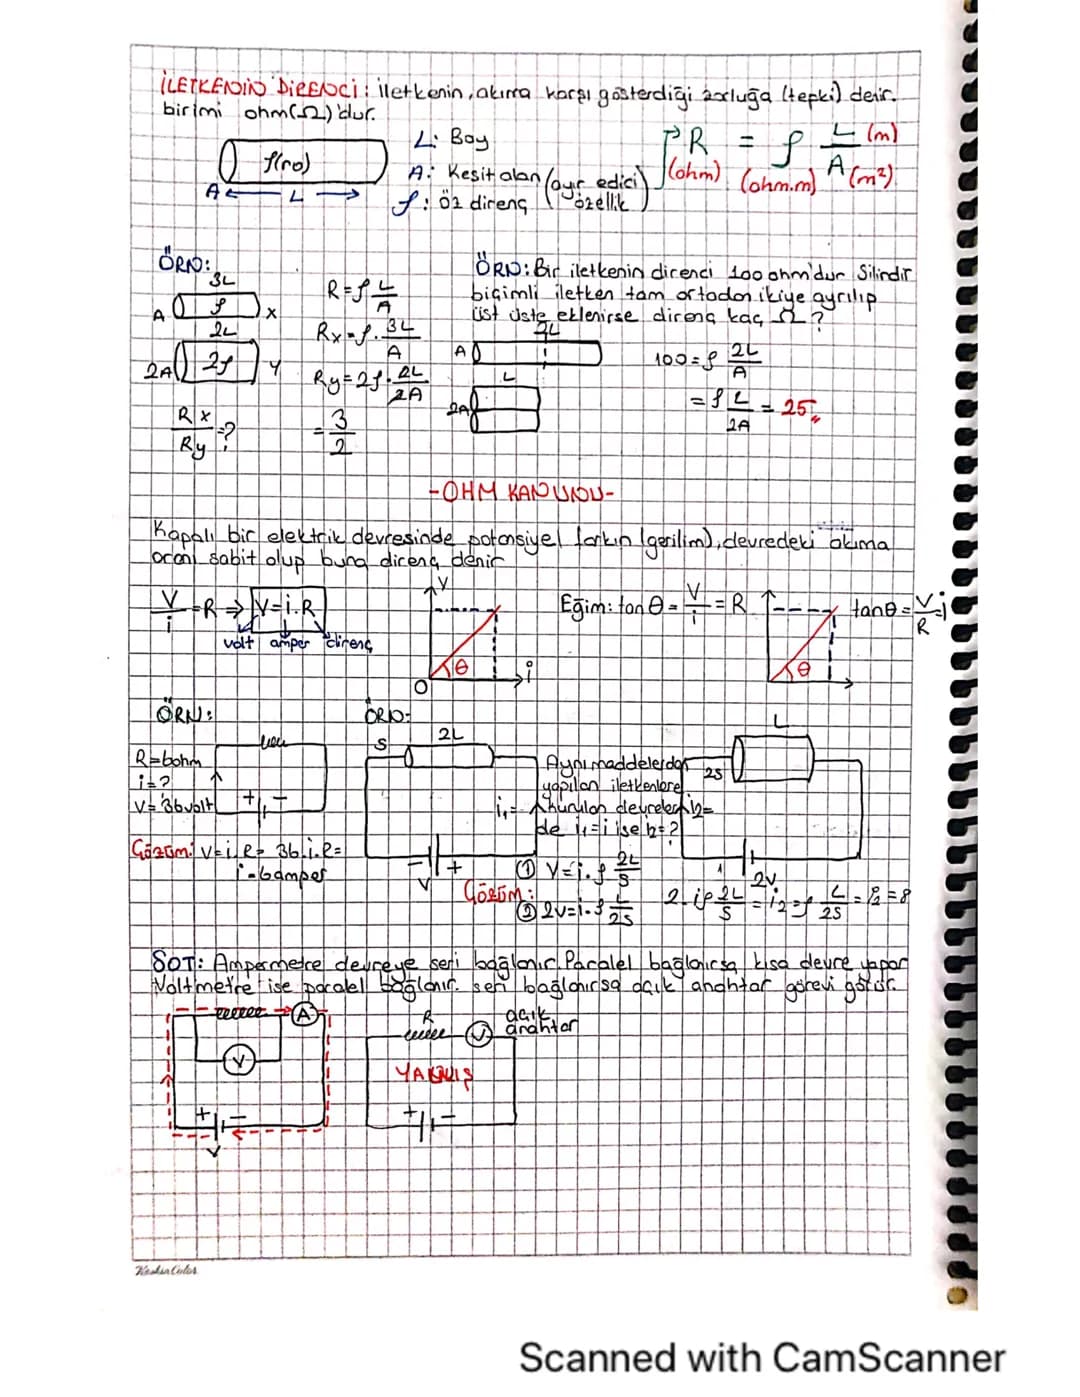 İLETKENİN DİRENCİ: iletkenin, akıma karşı gösterdiği zorluğa (tepki) denir.
birimi ohm(Ω)'dur.
L: Boy
A: Kesit alan
ρ: Öz direnç (ayır edici özellik)
ρ(ro)
A L
R = ρ L (m)
A (m²)
(ohm) (ohm.m)
ÖRN:
3L
A ρ x
2L
2A 2ρ y
Rx
Ry = ?
R=ρ L/A
Rx=ρ. 3L/A
Ry=2ρ. 2L/2A
= 3/2
ÖRN: Bir iletkenin direnci 100 ohm'dur Silindir
biçimli iletken tam ortadan ikiye ayrılıp
üst üste eklenirse direnç kaç Ω?
2L
A
L
2A
100=ρ 2L/A
=ρ L/2A = 25
-OHM KANUNU-
Kapalı bir elektrik devresinde potansiyel farkın (gerilim), devredeki akıma
oranı sabit olup buna direnç denir
V/i =R ⇒ V=i.R
volt amper direnç
V
θ
O i
Eğim: tanθ = V/i = R
θ
tanθ = V/R = i
ÖRN:
R=6ohm
i=?
V=36volt
+ -
Çözüm: V=i.R= 36.i.R=
i=6amper
ÖRN:
S 2L
i₁=
- +
V
Aynı maddelerden
yapılan iletkenlere
kurulan devreler
de i₁=i ise i₂=?
L
2S
i₂=
2V
Çözüm:
① V=i.ρ 2L/S
② 2V=i.ρ L/2S
2.iρ 2L/S = i₂=ρ L/2S = i₂ =8
SOT: Ampermetre devreye seri bağlanır. Paralel bağlanırsa kısa devre yapar
Voltmetre ise paralel bağlanır. seri bağlanırsa açık anahtar görevi görür.
A
V
+ -
V
R
V
açık
anahtar
YANLIŞ
+ -
Scanned with CamScanner